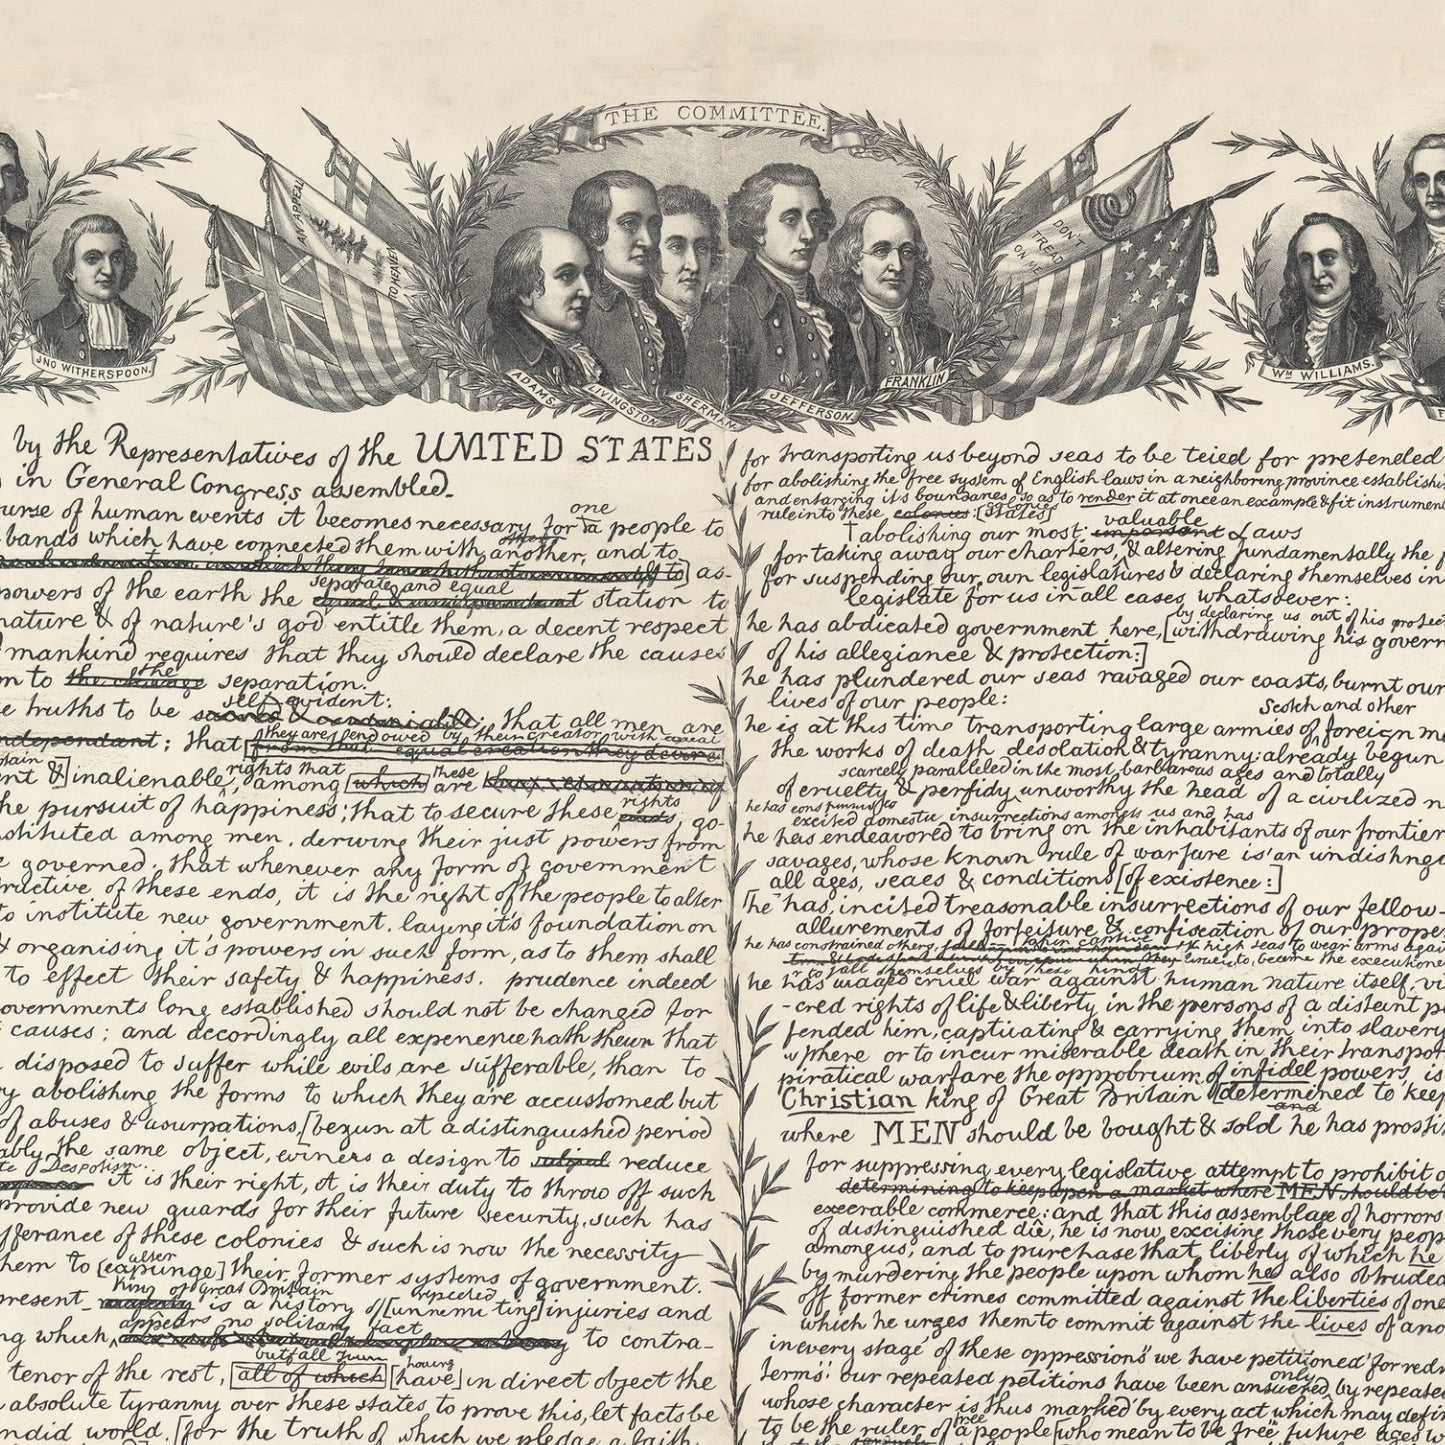 THE COMMITTEE.
AN APPEAL
TO HEAVEN
DON'T
TREAD
ON ME
JNO WITHERSPOON.
ADAMS.
LIVINGSTON
SHERMAN
JEFFERSON.
FRANKLIN
Wᴹ WILLIAMS.
by the Representatives of the UNITED STATES
in General Congress assembled.
one
urse of human events it becomes necessary for a people to
bands which have connected them with another, and to
as-
separate and equal
powers of the earth the station to
nature & of nature's god entitle them, a decent respect
mankind requires that they should declare the causes
the
m to the change separation.
self evident:
e truths to be sacred & undeniable; that all men are
they are endowed by their creator with
ndependant; that from that equal creation they derive
rights that these
nt & inalienable, among [which] are
rights
he pursuit of happiness; that to secure these ends, go-
nstituted among men, deriving their just powers from
e governed; that whenever any form of government
ructive of these ends, it is the right of the people to alter
to institute new government, laying it's foundation on
& organising it's powers in such form, as to them shall
to effect their safety & happiness. prudence indeed
overnments long established should not be changed for
causes: and accordingly all experience hath shewn that
disposed to suffer while evils are sufferable, than to
ry abolishing the forms to which they are accustomed but
of abuses & usurpations, [begun at a distinguished period
ably the same object, evinces a design to subject reduce
te Despotism
it is their right, it is their duty to throw off such
provide new guards for their future security. such has
fferance of these colonies & such is now the necessity
alter
hem to [expunge] their former systems of government.
King of Great Britain repeated
present majesty is a history of [unremitting] injuries and
appears no solitary fact
ng which, to contra-
but all have having
tenor of the rest, [all of which] [have] in direct object the
absolute tyranny over these states to prove this, let facts be
ndid world, [for the truth of which we pledge a faith
for transporting us beyond seas to be tried for pretended
for abolishing the free system of English laws in a neighboring province establishi
and enlarging it's boundaries so as to render it at once an example & fit instrument
rule into these colonies: [states]
valuable
abolishing our most important Laws
for taking away our charters, & altering fundamentally the
for suspending our own legislatures & declaring themselves in
legislate for us in all cases whatsoever:
by declaring us out of his protec
he has abdicated government here, [withdrawing his govern
of his allegiance & protection:]
he has plundered our seas ravaged our coasts, burnt our
lives of our people:
Scotch and other
he is at this time transporting large armies of foreign me
the works of death desolation & tyranny: already begun
scarcely paralleled in the most barbarous ages and totally
of cruelty & perfidy unworthy the head of a civilized n
excited domestic insurrections amongst us and has
he has endeavored to bring on the inhabitants of our frontier
savages, whose known rule of warfare is an undistingu
all ages, sexes & conditions [of existence:]
[he has incited treasonable insurrections of our fellow-
allurements of forfeiture & confiscation of our proper
he has constrained others, high seas to wear arms agai
to become the executione
or to fall themselves by these hands
he has waged cruel war against human nature itself, vi
-cred rights of life & liberty in the persons of a distant pe
fended him, captivating & carrying them into slavery
where or to incur miserable death in their transpor
piratical warfare, the opprobrium of infidel powers, is
Christian king of Great Britain [determined to keep
and
where MEN should be bought & sold he has prosti
for suppressing every legislative attempt to prohibit o
determining to keep open a market where MEN should be
execrable commerce: and that this assemblage of horrors
of distinguished die, he is now exciting those very peop
among us, and to purchase that liberty of which he
by murdering the people upon whom he also obtruded
off former crimes committed against the liberties of one
which he urges them to commit against the lives of ano
in every stage of these oppressions we have petitioned for redr
only
terms: our repeated petitions have been answered by repeate
whose character is thus marked by every act which may defin
free
to be the ruler of a people [who mean to be free future ages w